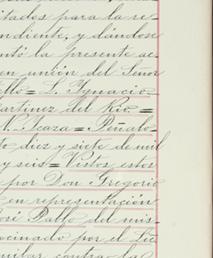 itados para la re-
ndiente, y dándose
ntó la presente ac-
en unión del Señor
ello = L. Ygnacio
artinez del Rio =
N. Icaza = Peñalo-
to diez y siete de mil
y seis = Vistos estos
por Don Gregorio
en representación
oré Balfo del mis-
ocinado por el Lic
uilar, contra la